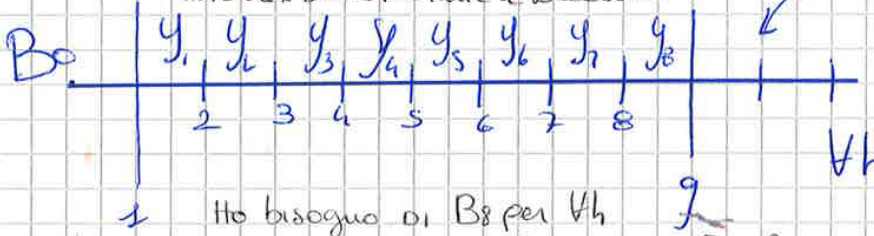 B₀ y₁ y₂ y₃ y₄ y₅ y₆ y₇ y₈
2 3 4 5 6 7 8
∀h
1 Ho bisogno DI B8 per ∀h 9